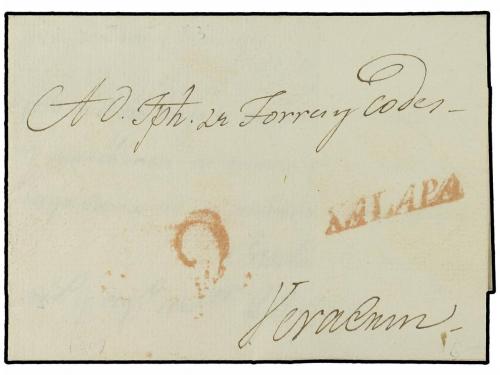 A d. Jph. de Torres y Codes
XALAPA
2
Veracruz